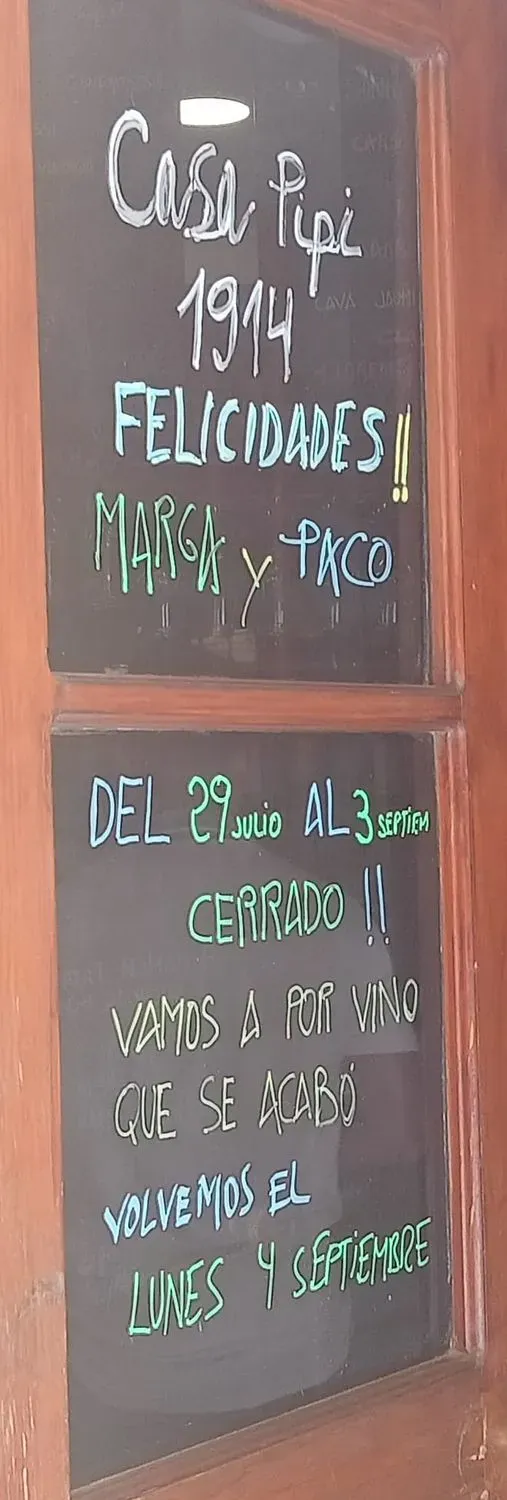 Casa Pipi
1914
FELICIDADES!!
MARGA y PACO
DEL 29 JULIO AL 3 SEPTIEM
CERRADO !!
VAMOS A POR VINO
QUE SE ACABÓ
VOLVEMOS EL
LUNES 4 SEPTIEMBRE